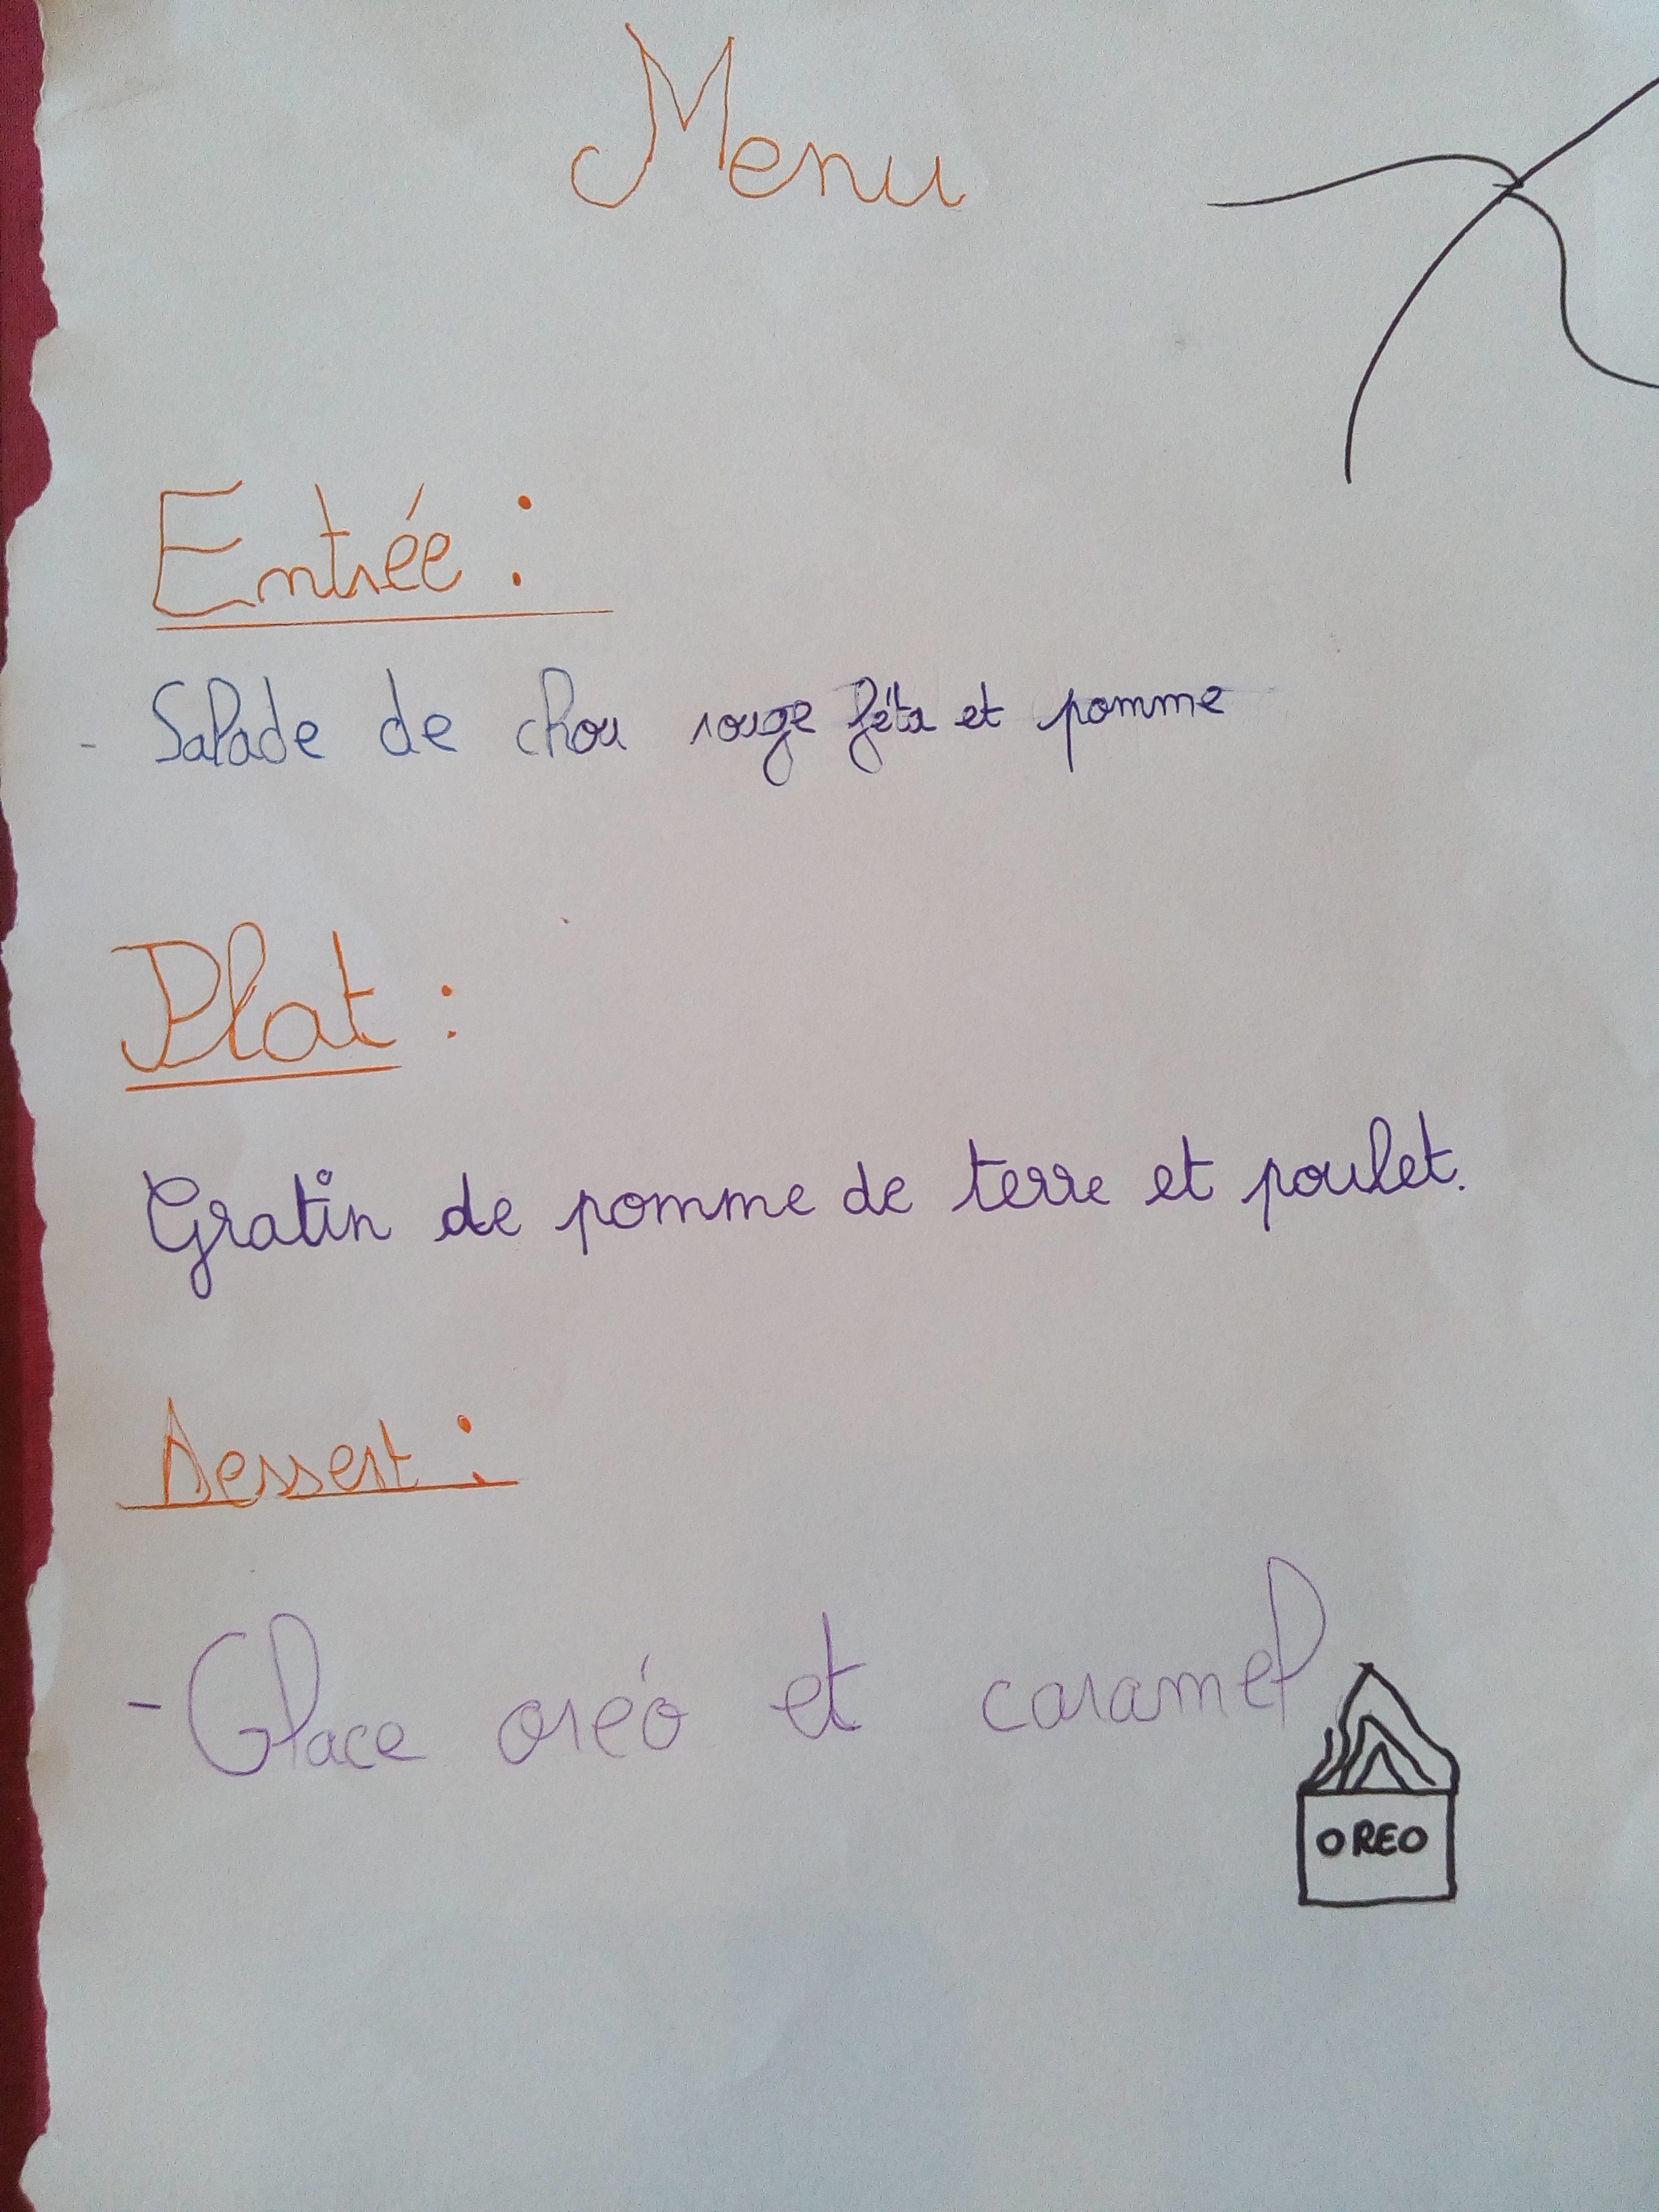 Menu
Entrée :
- Salade de chou rouge féta et pomme
Plat :
Gratin de pomme de terre et poulet.
Dessert :
- Glace oréo et caramel
OREO